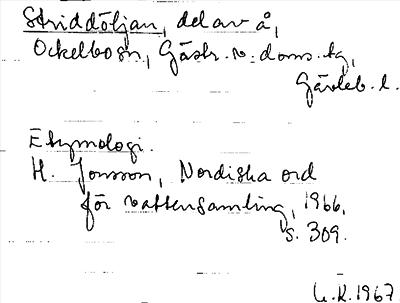 Striddöljan, del av å,
Ockelbo sn, Gästr. v: doms. tg,
Gävleb. l.
Etymologi.
H. Jonsson, Nordiska ord
för vattensamling, 1966,
s. 309.
G.K. 1967